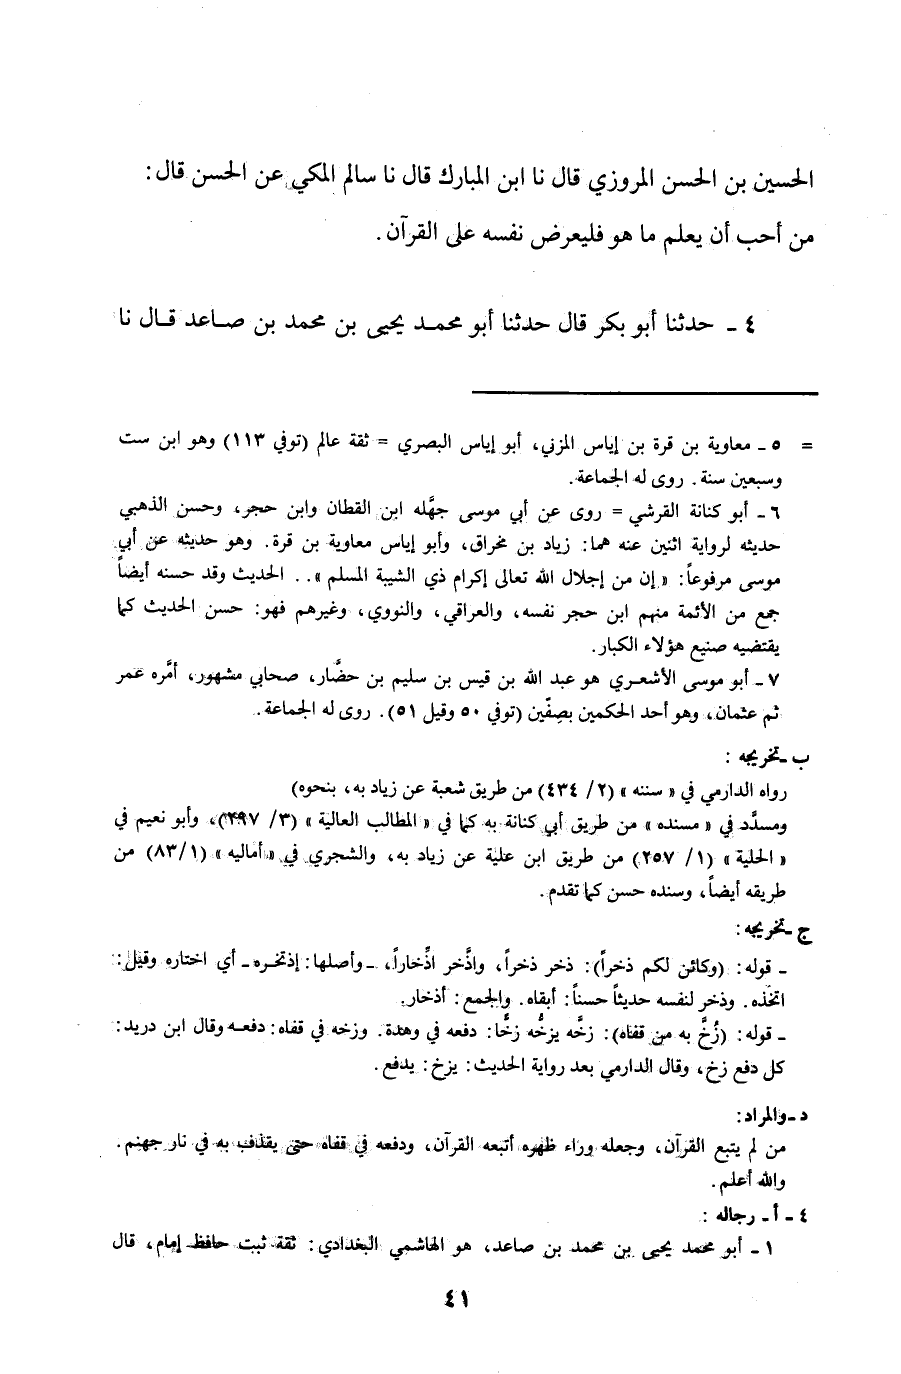 الحسين بن الحسن المروزي قال نا ابن المبارك قال نا سالم المكي عن الحسن قال:
من أحب أن يعلم ما هو فليعرض نفسه على القرآن.
٤ ـ حدثنا أبو بكر قال حدثنا أبو محمد يحيى بن محمد بن صاعد قال نا
= ٥ ـ معاوية بن قرة بن إياس المزني، أبو إياس البصري = ثقة عالم (توفي ١١٣) وهو ابن ست
وسبعين سنة. روى له الجماعة.
٦ ـ أبو كنانة القرشي = روى عن أبي موسى جهَّله ابن القطان وابن حجر، وحسن الذهبي
حديثه لرواية اثنين عنه هما: زياد بن مخراق، وأبو إياس معاوية بن قرة. وهو حديثه عن أبي
موسى مرفوعاً: «إن من إجلال الله تعالى إكرام ذي الشيبة المسلم».. الحديث وقد حسنه أيضاً
جمع من الأئمة منهم ابن حجر نفسه، والعراقي، والنووي، وغيرهم فهو: حسن الحديث كما
يقتضيه صنيع هؤلاء الكبار.
٧ ـ أبو موسى الأشعري هو عبد الله بن قيس بن سليم بن حضَّار، صحابي مشهور، أمَّره عمر
ثم عثمان، وهو أحد الحكمين بصِفّين (توفي ٥٠ وقيل ٥١). روى له الجماعة.
ب ـ تخريجه:
رواه الدارمي في «سننه» (٢/ ٤٣٤) من طريق شعبة عن زياد به، بنحوه)
ومسدَّد في «مسنده» من طريق أبي كنانة به كما في «المطالب العالية» (٣/ )، وأبو نعيم في
«الحلية» (١/ ٢٥٧) من طريق ابن علية عن زياد به، والشجري في «أماليه» (٨٣/١) من
طريقه أيضاً، وسنده حسن كما تقدم.
ج ـ تخريجه:
ـ قوله: (وكائن لكم ذخراً): ذخر ذخراً، واذَّخر اذِّخاراً، ـ وأصلها: إذتخره ـ أي اختاره وقيل:
اتخذه. وذخر لنفسه حديثاً حسناً: أبقاه. والجمع: أذخار.
ـ قوله: (زُخَّ به من قفاه): زخَّه يزخُّه زخًّا: دفعه في وهدة. وزخه في قفاه: دفعه وقال ابن دريد:
كل دفع زخ، وقال الدارمي بعد رواية الحديث: يزخ: يدفع.
د ـ والمراد:
من لم يتبع القرآن، وجعله وراء ظهره أتبعه القرآن، ودفعه في قفاه حتى يقذف به في نار جهنم.
والله أعلم.
٤ ـ أ ـ رجاله:
١ ـ أبو محمد يحيى بن محمد بن صاعد، هو الهاشمي البغدادي: ثقة ثبت حافظ إمام، قال
٤١